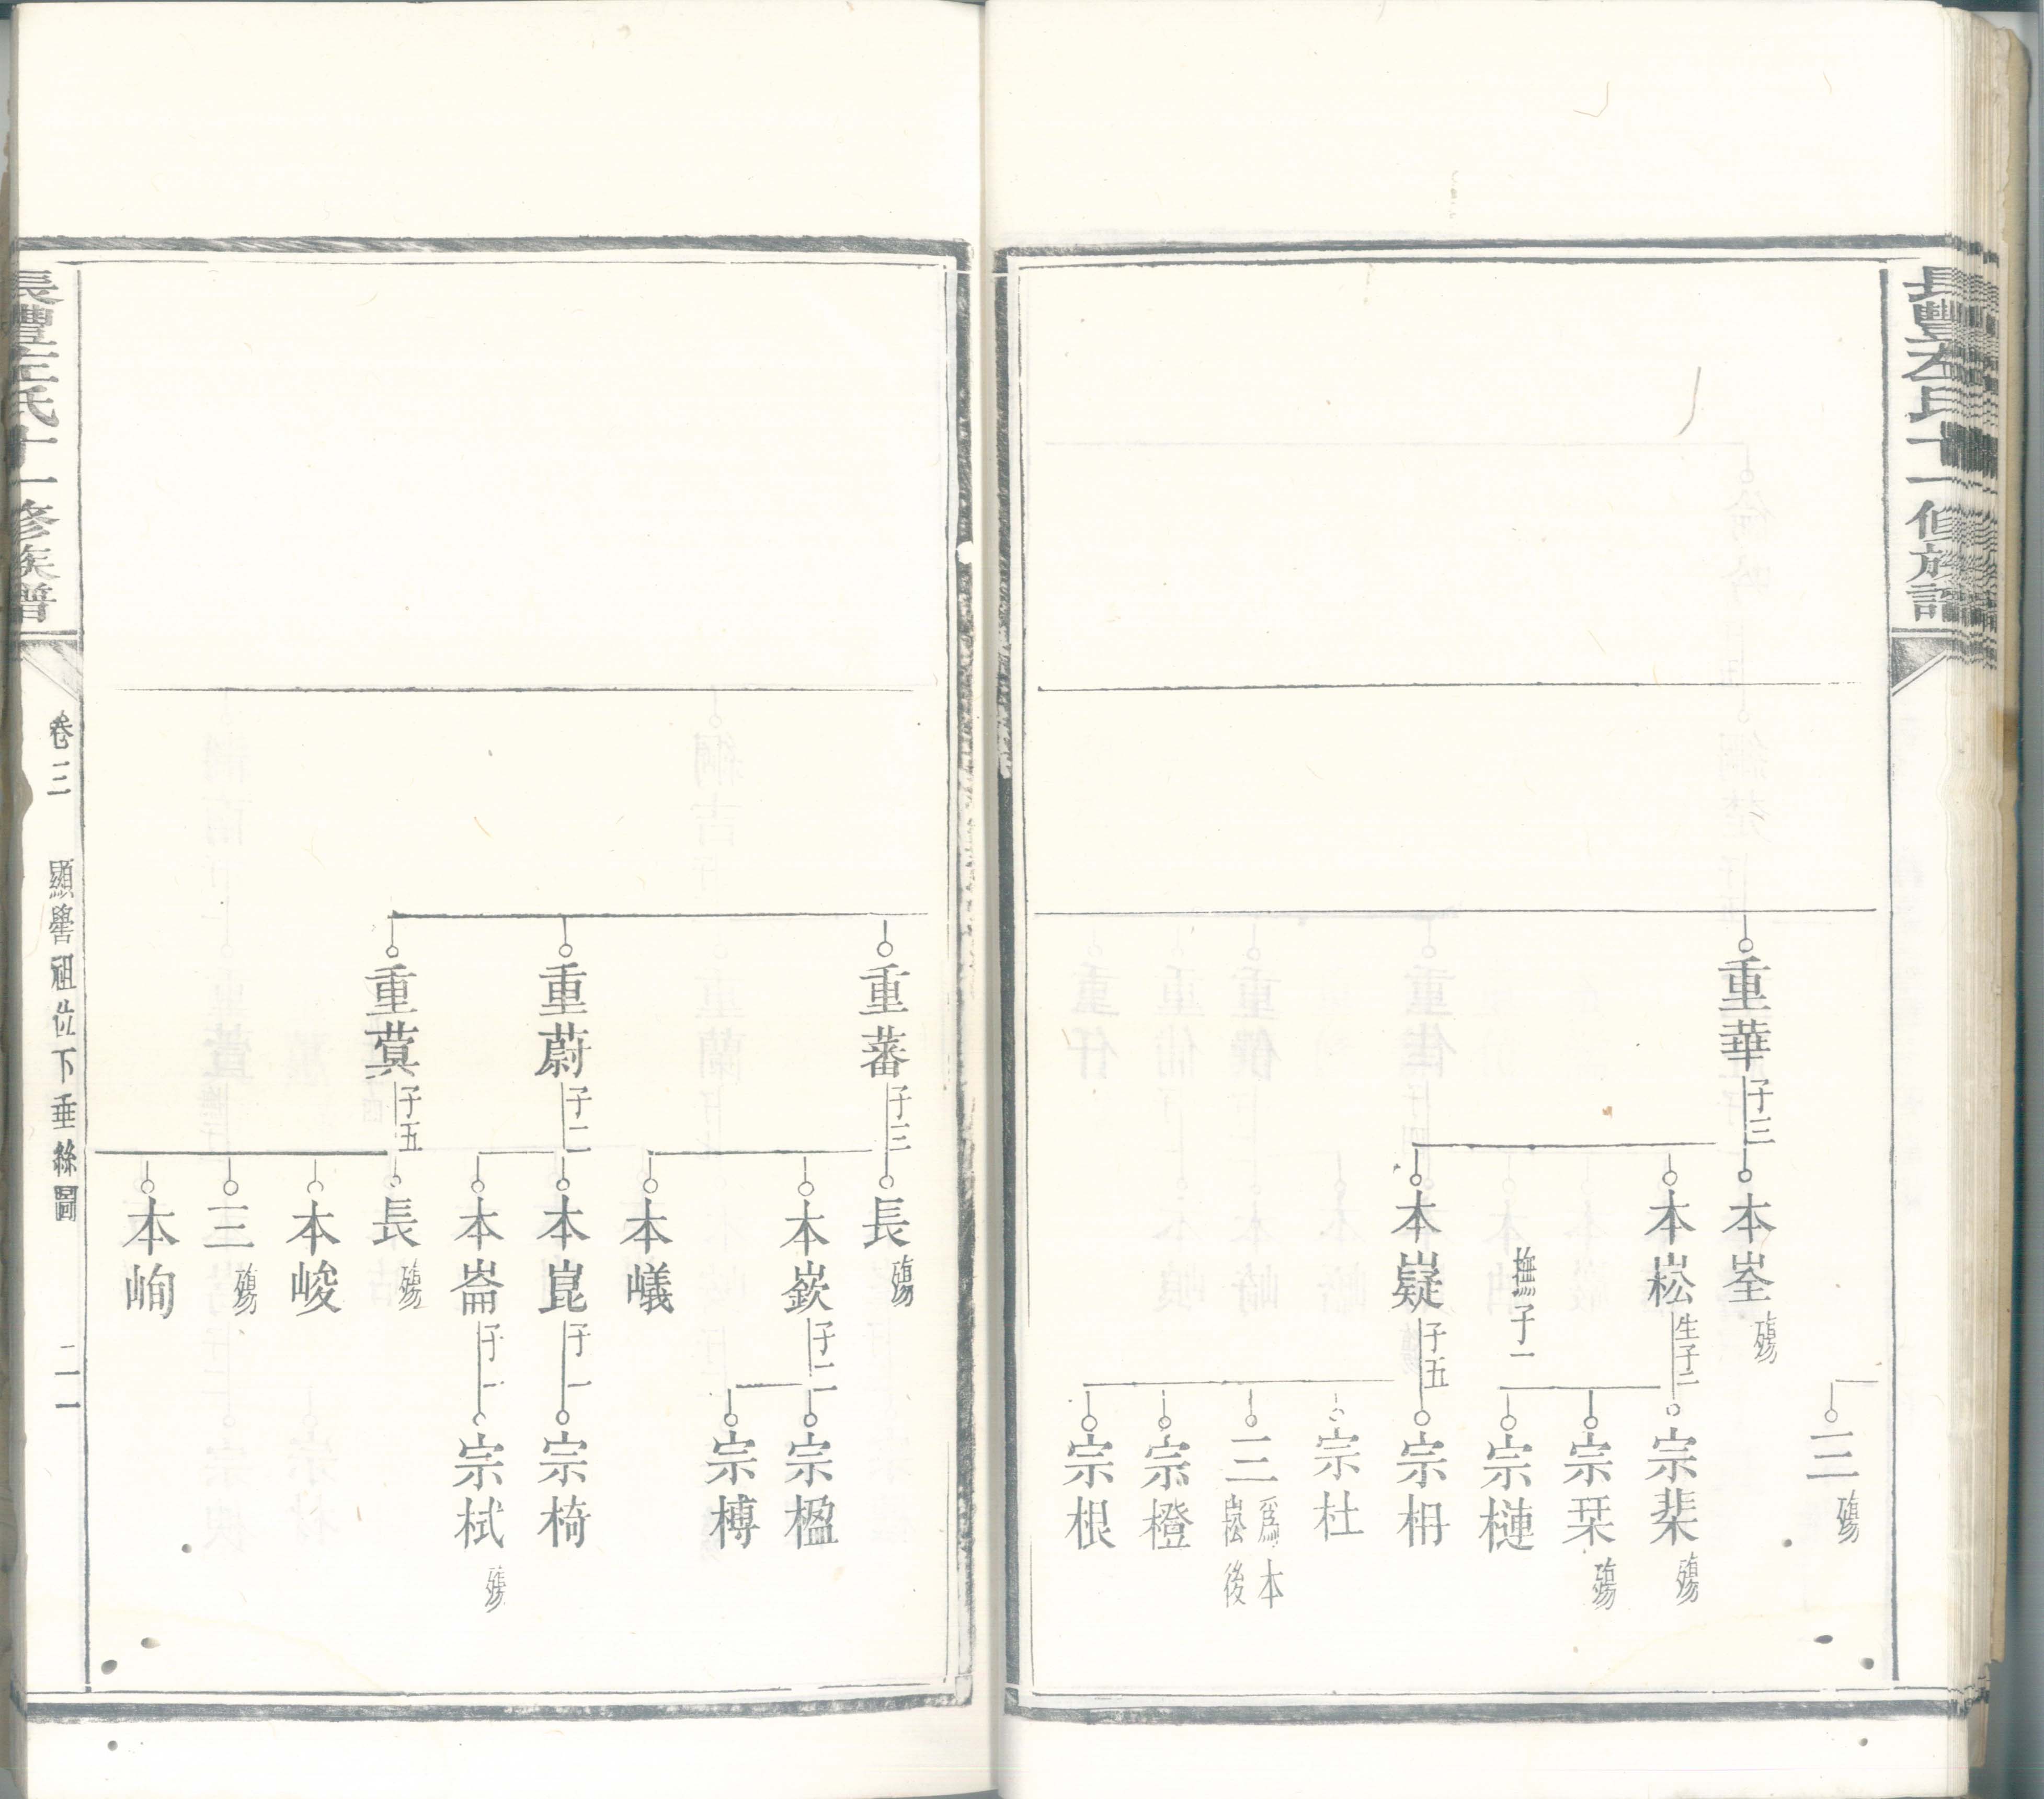 長豐左氏十一修族譜
三 殤
重華 子三
本峑 殤
本崧 生子二
撫子一
本嶷 子五
宗棐 殤
宗栞 殤
宗槤
宗枏
宗杜
三 爲本崧後
宗橙
宗根
重蕃 子三
長 殤
本嶔 子二
本嶬
宗楹
宗榑
重蔚 子二
本崑 子一
本崙 子一
宗椅
宗栻 殤
重蓂 子五
長 殤
本峻
三 殤
本峋
長豐左氏十一修族譜
卷三
顯嚳祖位下垂絲圖
二一